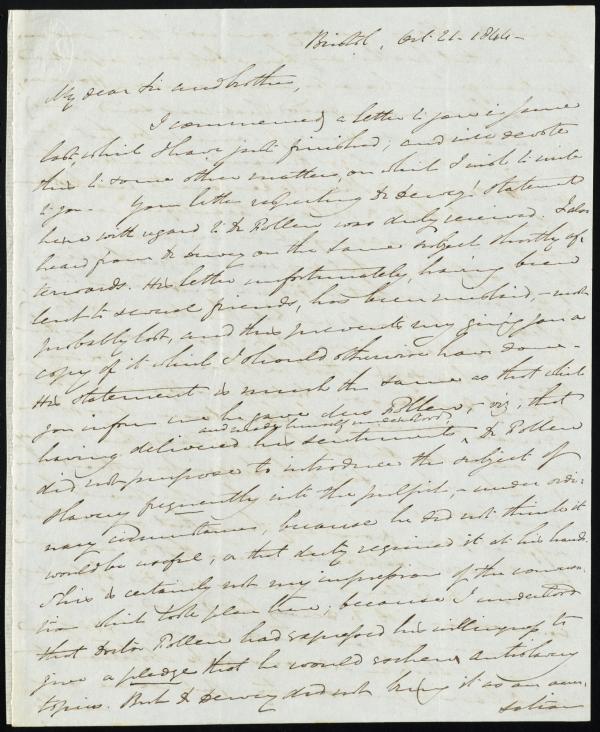 Bristol, Oct. 21. 1844-
My dear Sir and brother,
I commenced a letter to you in June
last, which I have just finished; and will devote
this to some other matters, on which I wish to write
to you. Your letter respecting Dr Dewey's statement
here with regard to Dr Follen was duly received. I also
heard from Dr Dewey on the same subject shortly af-
terwards. His letter unfortunately, having been
lent to several friends, has been mislaid, - most
probably lost, and this prevents my giving you a
copy of it which I should otherwise have done -
His statement is much the same as that which
you inform me he gave Mrs Follen, - viz, that
and made himself understood,
having delivered his sentiments ^ Dr Follen
did not purpose to introduce the subject of
Slavery frequently into the pulpit, - under ordi-
nary circumstances, because he did not think it
would be useful, or that duty required it at his hands.
This is certainly not my impression of the conversa-
tion which took place then; because I understood
that Doctor Follen had expressed his willingness to
give a pledge that he would eschew antislavery
topics. But Dr Dewey did not bring it as an accu-
sation